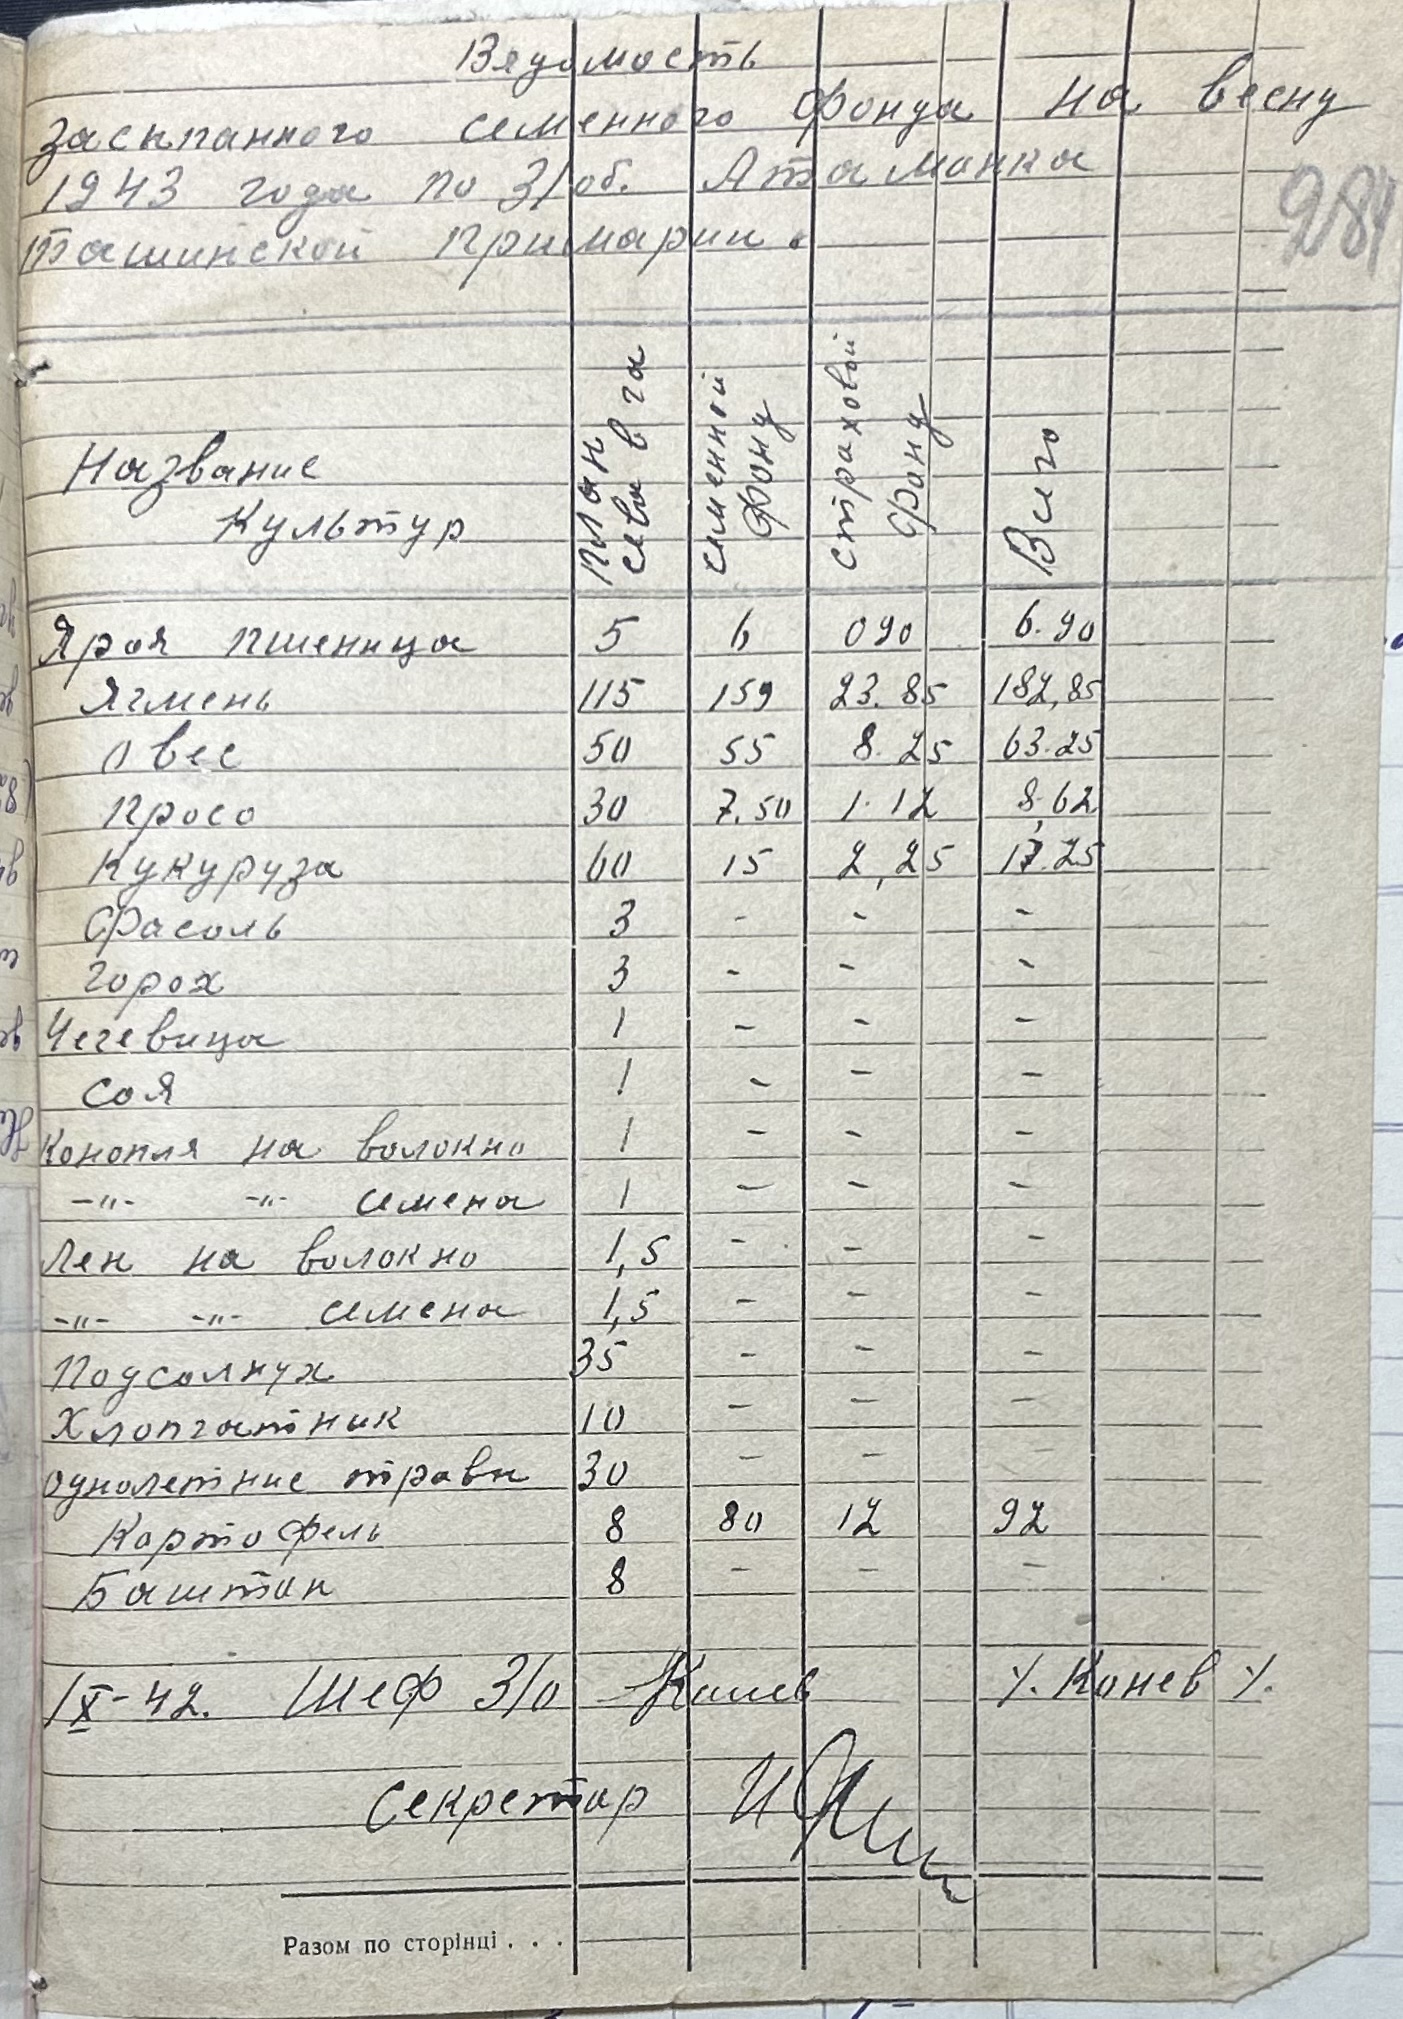 Вядомость
засыпанного семенного фонда на весну
1943 года по З/об. Атаманка
Ташинской Примарии.
284
Название Культур
План сева в га
семенной фонд
страховой фонд
Всего
Ярая пшеница 5 6 090 6.90
Ячмень 115 159 23.85 182,85
Овес 50 55 8.25 63.25
Просо 30 7.50 1.12 8,62
Кукуруза 60 15 2,25 17.25
Фасоль 3 - - -
Горох 3 - - -
Чечевица 1 - - -
Соя 1 - - -
Конопля на волокно 1 - - -
-"- -"- семена 1 - - -
Лен на волокно 1,5 - - -
-"- -"- семена 1,5 - - -
Подсолнух 35 - - -
Хлопчатник 10 - - -
однолетние травы 30 - - -
Картофель 8 80 12 92
Баштан 8 - - -
1X-42. Шеф З/о Конев /. Конев /.
Секретар
Разом по сторінці . . .